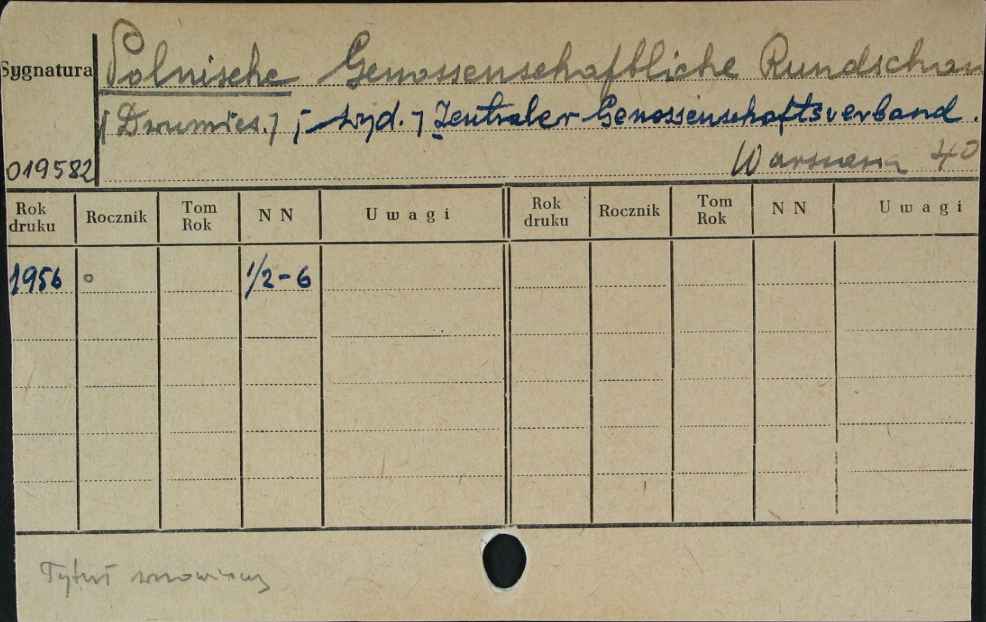 Sygnatura
Polnische Genossenschaftliche Rundschau
[Dwumies.] [Wyd.] Zentraler Genossenschaftsverband.
019582
Warszawa 40
Rok druku Rocznik Tom Rok N N Uwagi Rok druku Rocznik Tom Rok N N Uwagi
1956 1/2-6
Tytuł